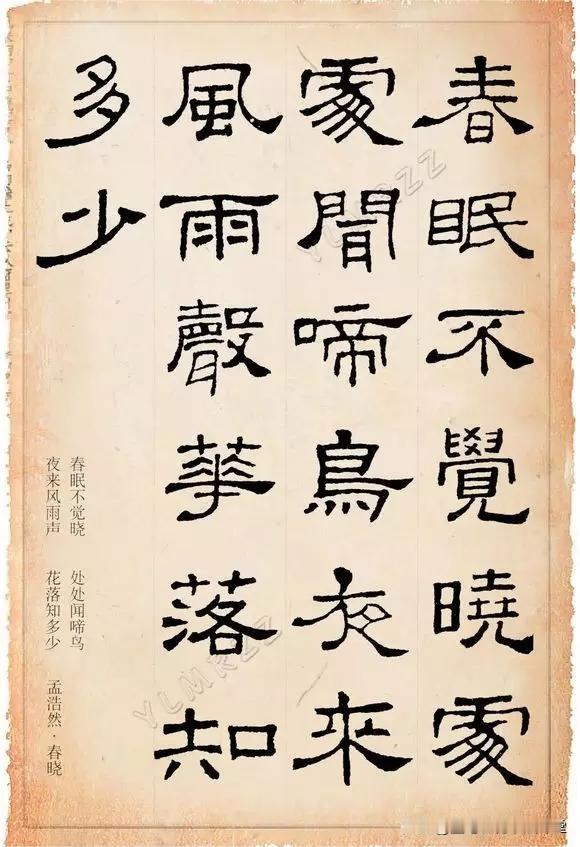 春眠不覺曉處
處聞啼鳥夜来
風雨聲華落知
多少
春眠不觉晓 处处闻啼鸟 孟浩然·春晓
夜来风雨声 花落知多少
YLMRZZ
YLMRZZ